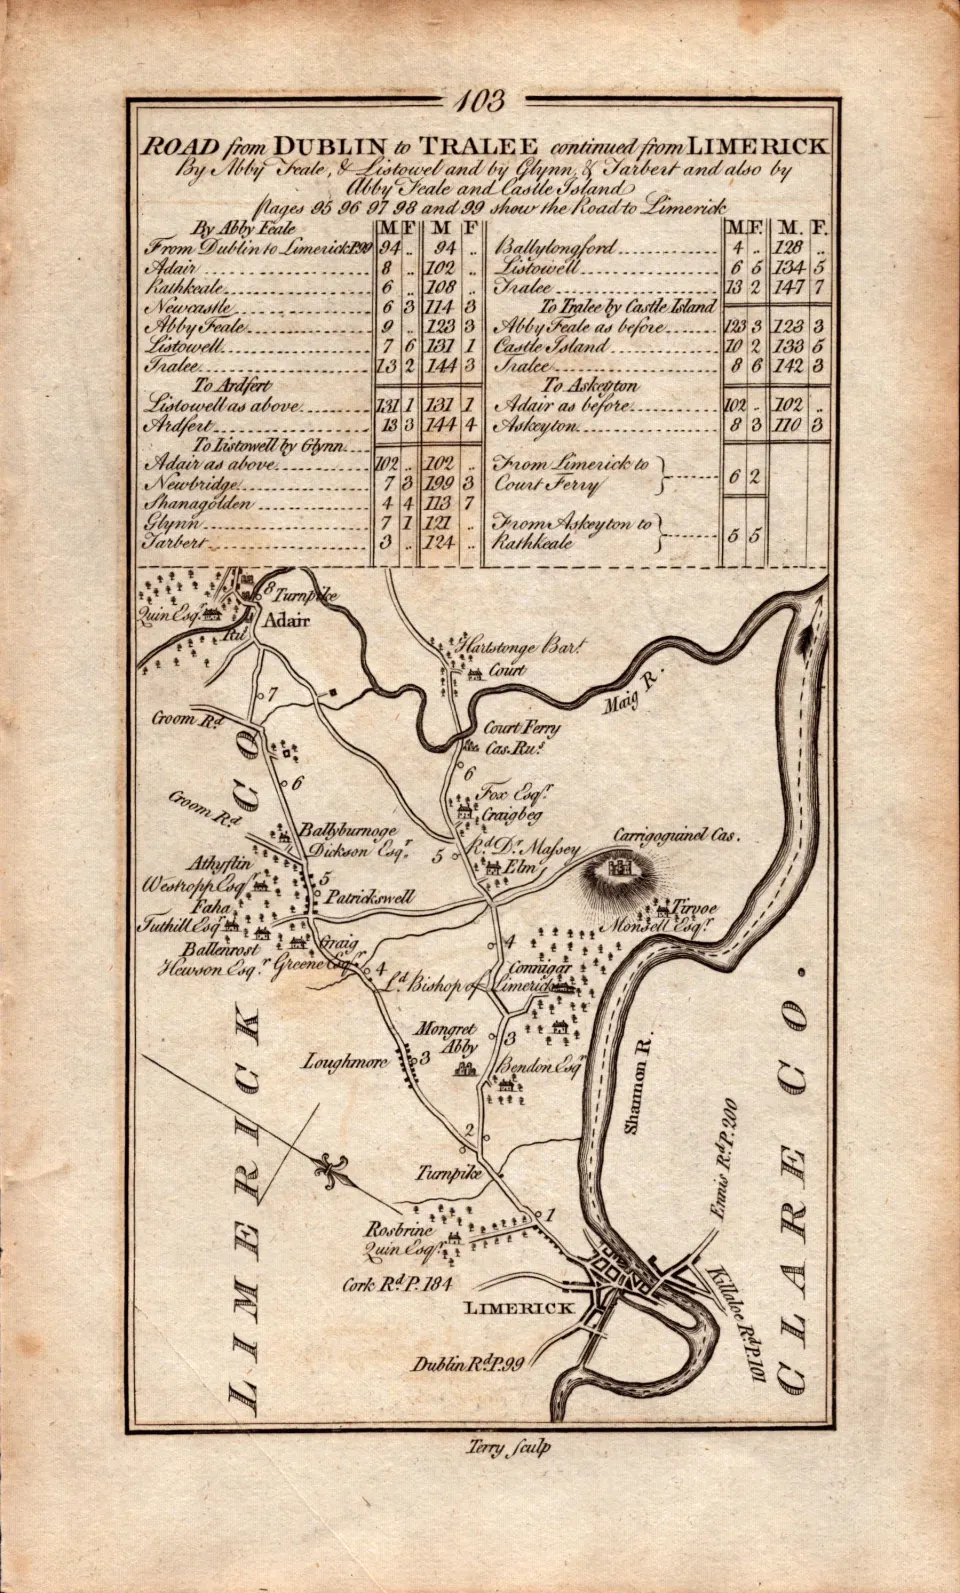 103
ROAD from DUBLIN to TRALEE continued from LIMERICK
By Abby Feale, & Listowel and by Glynn, & Tarbert and also by
Abby Feale and Castle Island
Pages 95 96 97 98 and 99 show the Road to Limerick
By Abby Feale M F M F
From Dublin to Limerick P.99 94 .. 94 ..
Adair 8 .. 102 ..
Rathkeale 6 .. 108 ..
Newcastle 6 3 114 3
Abby Feale 9 .. 123 3
Listowell 7 6 131 1
Tralee 13 2 144 3
To Ardfert
Listowell as above 131 1 131 1
Ardfert 13 3 144 4
To Listowell by Glynn
Adair as above 102 .. 102 ..
Newbridge 7 3 199 3
Shanagolden 4 4 113 7
Glynn 7 1 121 ..
Tarbert 3 .. 124 ..
M. F. M. F.
Ballylongford 4 .. 128 ..
Listowell 6 5 134 5
Tralee 13 2 147 7
To Tralee by Castle Island
Abby Feale as before 123 3 123 3
Castle Island 10 2 133 5
Tralee 8 6 142 3
To Askeyton
Adair as before 102 .. 102 ..
Askeyton 8 3 110 3
From Limerick to
Court Ferry 6 2
From Askeyton to
Rathkeale 5 5
8 Turnpike
Quin Esqr.
Adair
Hartstonge Bart.
Court
7
Maig R.
Croom Rd.
Court Ferry
Cas. Rus.
6
6
Fox Esqr.
Craigbeg
Croom Rd.
Ballyburnoge
Dickson Esqr.
5
Rd. Dr. Massey
Elm
Carrigoguinel Cas.
Athyflin
Westropp Esqr.
5
Patrickswell
Faha
Tuthill Esqr.
Tirvoe
Monsell Esqr.
Ballenrost
Hewson Esqr.
Graig
Greene Esqr.
4
4
Connigar
Ld. Bishop of Limerick
Mongret
Abby
3
Loughmore
3
Bendon Esqr.
Shannon R.
2
Turnpike
1
Rosbrine
Quin Esqr.
Ennis Rd. P. 200
Cork Rd. P. 184
LIMERICK
Killaloe Rd. P. 101
Dublin Rd. P. 99
LIMERICK CO
CLARE CO.
Terry sculp